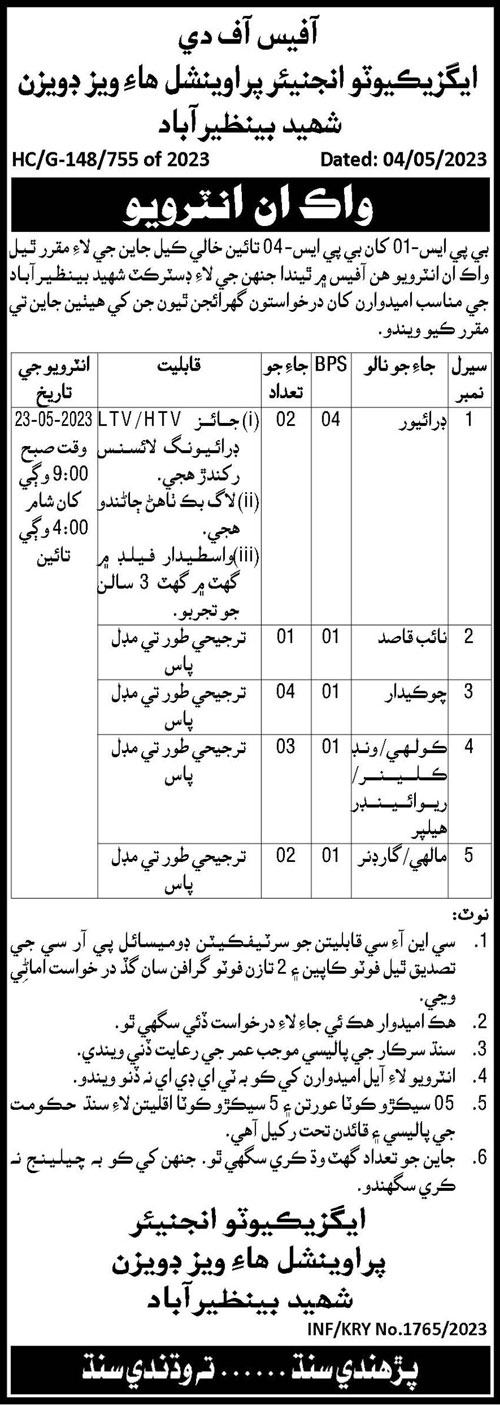 آفيس آف دي
ايگزيڪيوٽو انجنيئر پراوينشل هاءِ ويز ڊويزن
شهيد بينظيرآباد
HC/G-148/755 of 2023 Dated: 04/05/2023
واڪ ان انٽرويو
بي پي ايس-01 کان بي پي ايس-04 تائين خالي ڪيل جاين جي لاءِ مقرر ٿيل
واڪ ان انٽرويو هن آفيس ۾ ٿيندا جنهن جي لاءِ ڊسٽرڪٽ شهيد بينظيرآباد
جي مناسب اميدوارن کان درخواستون گهرائجن ٿيون جن کي هيٺين جاين تي
مقرر ڪيو ويندو.
سيرل نمبر | جاءِ جو نالو | BPS | جاءِ جو تعداد | قابليت | انٽرويو جي تاريخ
1 | ڊرائيور | 04 | 02 | (i) جائز LTV/HTV
ڊرائيونگ لائسنس
رکندڙ هجي.
(ii) لاگ بڪ ٺاهڻ ڄاڻندو
هجي.
(iii) واسطيدار فيلڊ ۾
گهٽ ۾ گهٽ 3 سالن
جو تجربو.
23-05-2023
وقت صبح
9:00 وڳي
کان شام
4:00 وڳي
تائين
2 | نائب قاصد | 01 | 01 | ترجيحي طور تي مڊل
پاس
3 | چوڪيدار | 01 | 04 | ترجيحي طور تي مڊل
پاس
4 | ڪولهي/ونڊ
ڪلينر/
ريوائينڊر
هيلپر | 01 | 03 | ترجيحي طور تي مڊل
پاس
5 | مالهي/گارڊنر | 01 | 02 | ترجيحي طور تي مڊل
پاس
نوٽ:
1. سي اين آءِ سي قابليتن جو سرٽيفڪيٽن ڊوميسائل پي آر سي جي
تصديق ٿيل فوٽو ڪاپين ۽ 2 تازن فوٽو گرافن سان گڏ درخواست اماڻي
وڃي.
2. هڪ اميدوار هڪ ئي جاءِ لاءِ درخواست ڏئي سگهي ٿو.
3. سنڌ سرڪار جي پاليسي موجب عمر جي رعايت ڏني ويندي.
4. انٽرويو لاءِ آيل اميدوارن کي ڪو به ٽي اي ڊي اي نه ڏنو ويندو.
5. 05 سيڪڙو ڪوٽا عورتن ۽ 5 سيڪڙو ڪوٽا اقليتن لاءِ سنڌ حڪومت
جي پاليسي ۽ قائدن تحت رکيل آهي.
6. جاين جو تعداد گهٽ وڌ ڪري سگهي ٿو. جنهن کي ڪو به چيلينج نه
ڪري سگهندو.
ايگزيڪيوٽو انجنيئر
پراوينشل هاءِ ويز ڊويزن
شهيد بينظيرآباد
INF/KRY No.1765/2023
پڙهندي سنڌ ...... ته وڌندي سنڌ